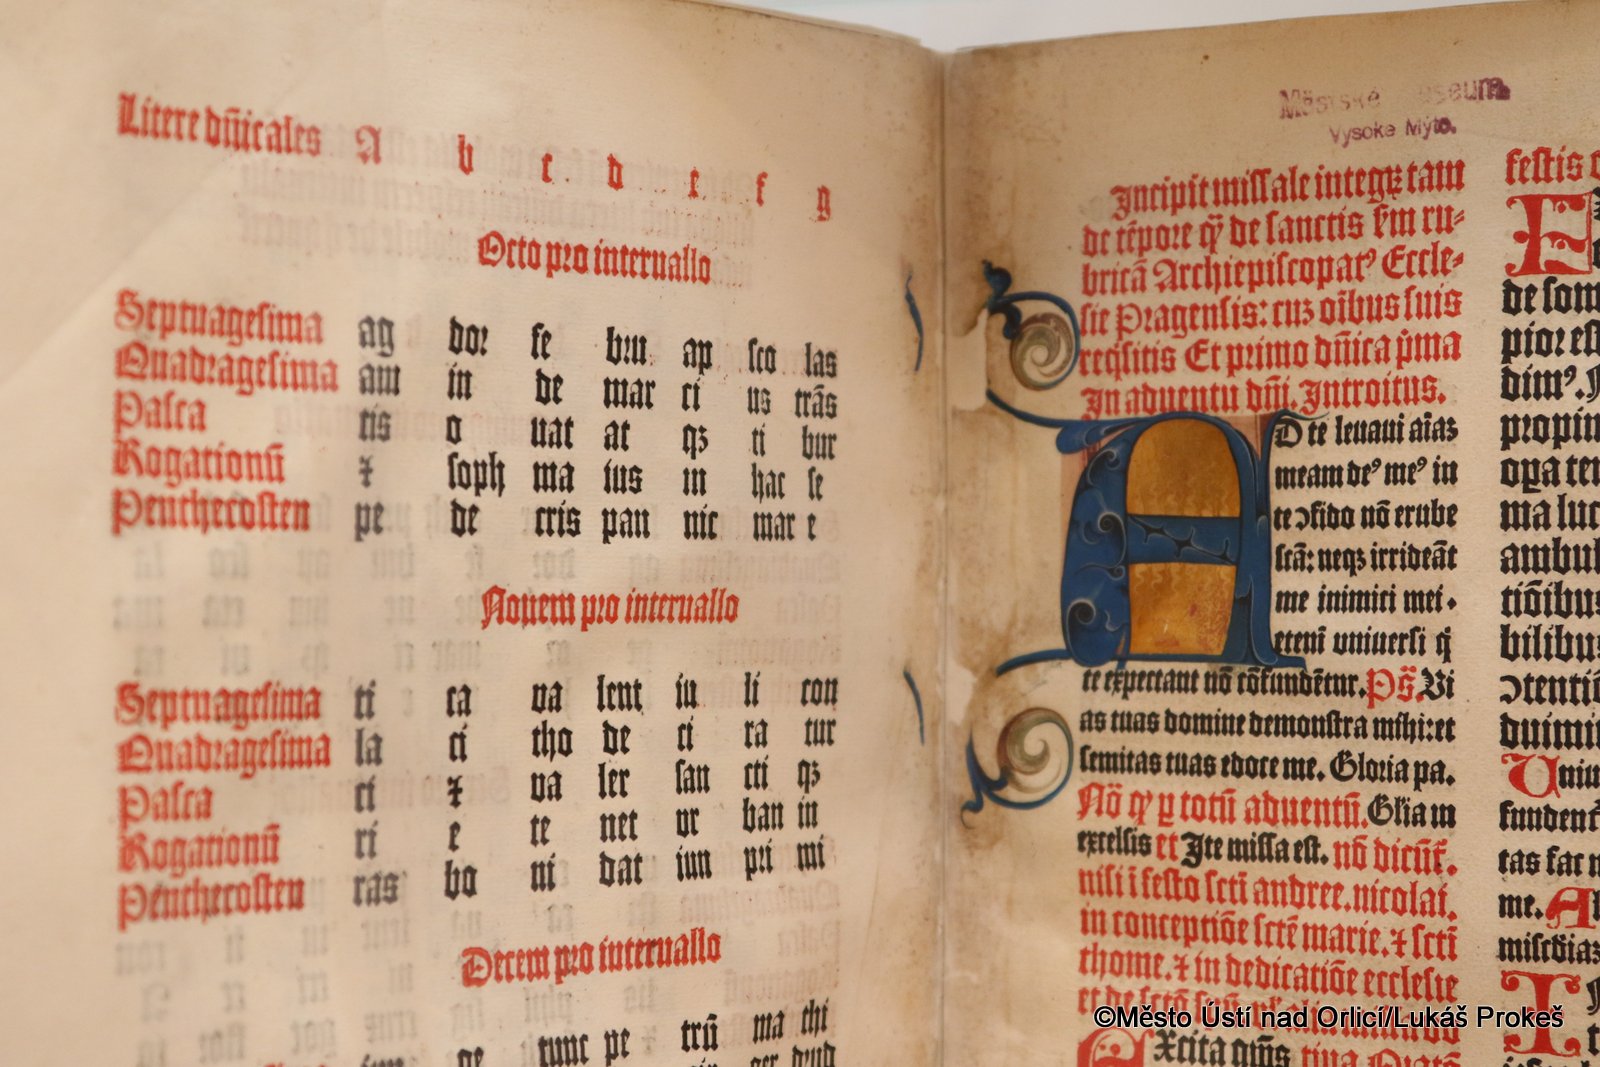 Litere dñicales A b c d e f g
Octo pro interuallo
Septuagesima ag dor fe bru ap sco las
Quadragesima am in de mar ci us trãs
Pasca tis o uat at qꝫ ti bur
Rogationũ ⁊ soph ma ius in hac se
Penthecosten pe de cris pan nic mar e
Nouem pro interuallo
Septuagesima ti ca va lent iu li con
Quadragesima la ci tho de ci ra tur
Pasca ci ⁊ va ler san cti qꝫ
Rogationũ ri e te net vr ban in
Penthecosten ras bo ni dat iun pri mi
Decem pro interuallo
tunc pe trũ ma thi
Městské Museum
Vysoke Mýto.
Incipit missale integrꝝ tam
de tẽpore qꝫ de sanctis ẜm ru-
bricã Archiepiscopatꝰ Eccle-
sie Pragensis: cuꝫ oĩbus suis
reqͥsitis Et primo dñica pͥma
In aduentu dñi. Introitus.
AD te leuaui aĩaꝫ
meam deꝰ meꝰ in
te ɔfido nõ erube
scã: neqꝫ irrideãt
me inimici mei.
etenĩ vniuersi qͥ
te expectant nõ cõfundẽtur. Ps̃. Vi
as tuas domine demonstra mihi: et
semitas tuas edoce me. Gloria pa.
Nõ qꝫ ꝑ totũ aduentũ. Glĩa in
excelsis et Ite missa est. nõ dicũt̃.
nisi ĩ festo scti andree. nicolai.
in conceptiõe sctẽ marie. ⁊ scti
thome. ⁊ in dedicatiõe ecclesie
et de
Excita qm̃s
festis
de som
pior est
dimꝰ.
propin
opa ten
ma luc
ambul
tiõibus
bilibus
ɔtentiõ
duimin
Uniu
fundent̃
tas fac
me. Al
miscdiaꝫ
©Město Ústí nad Orlicí/Lukáš Prokeš